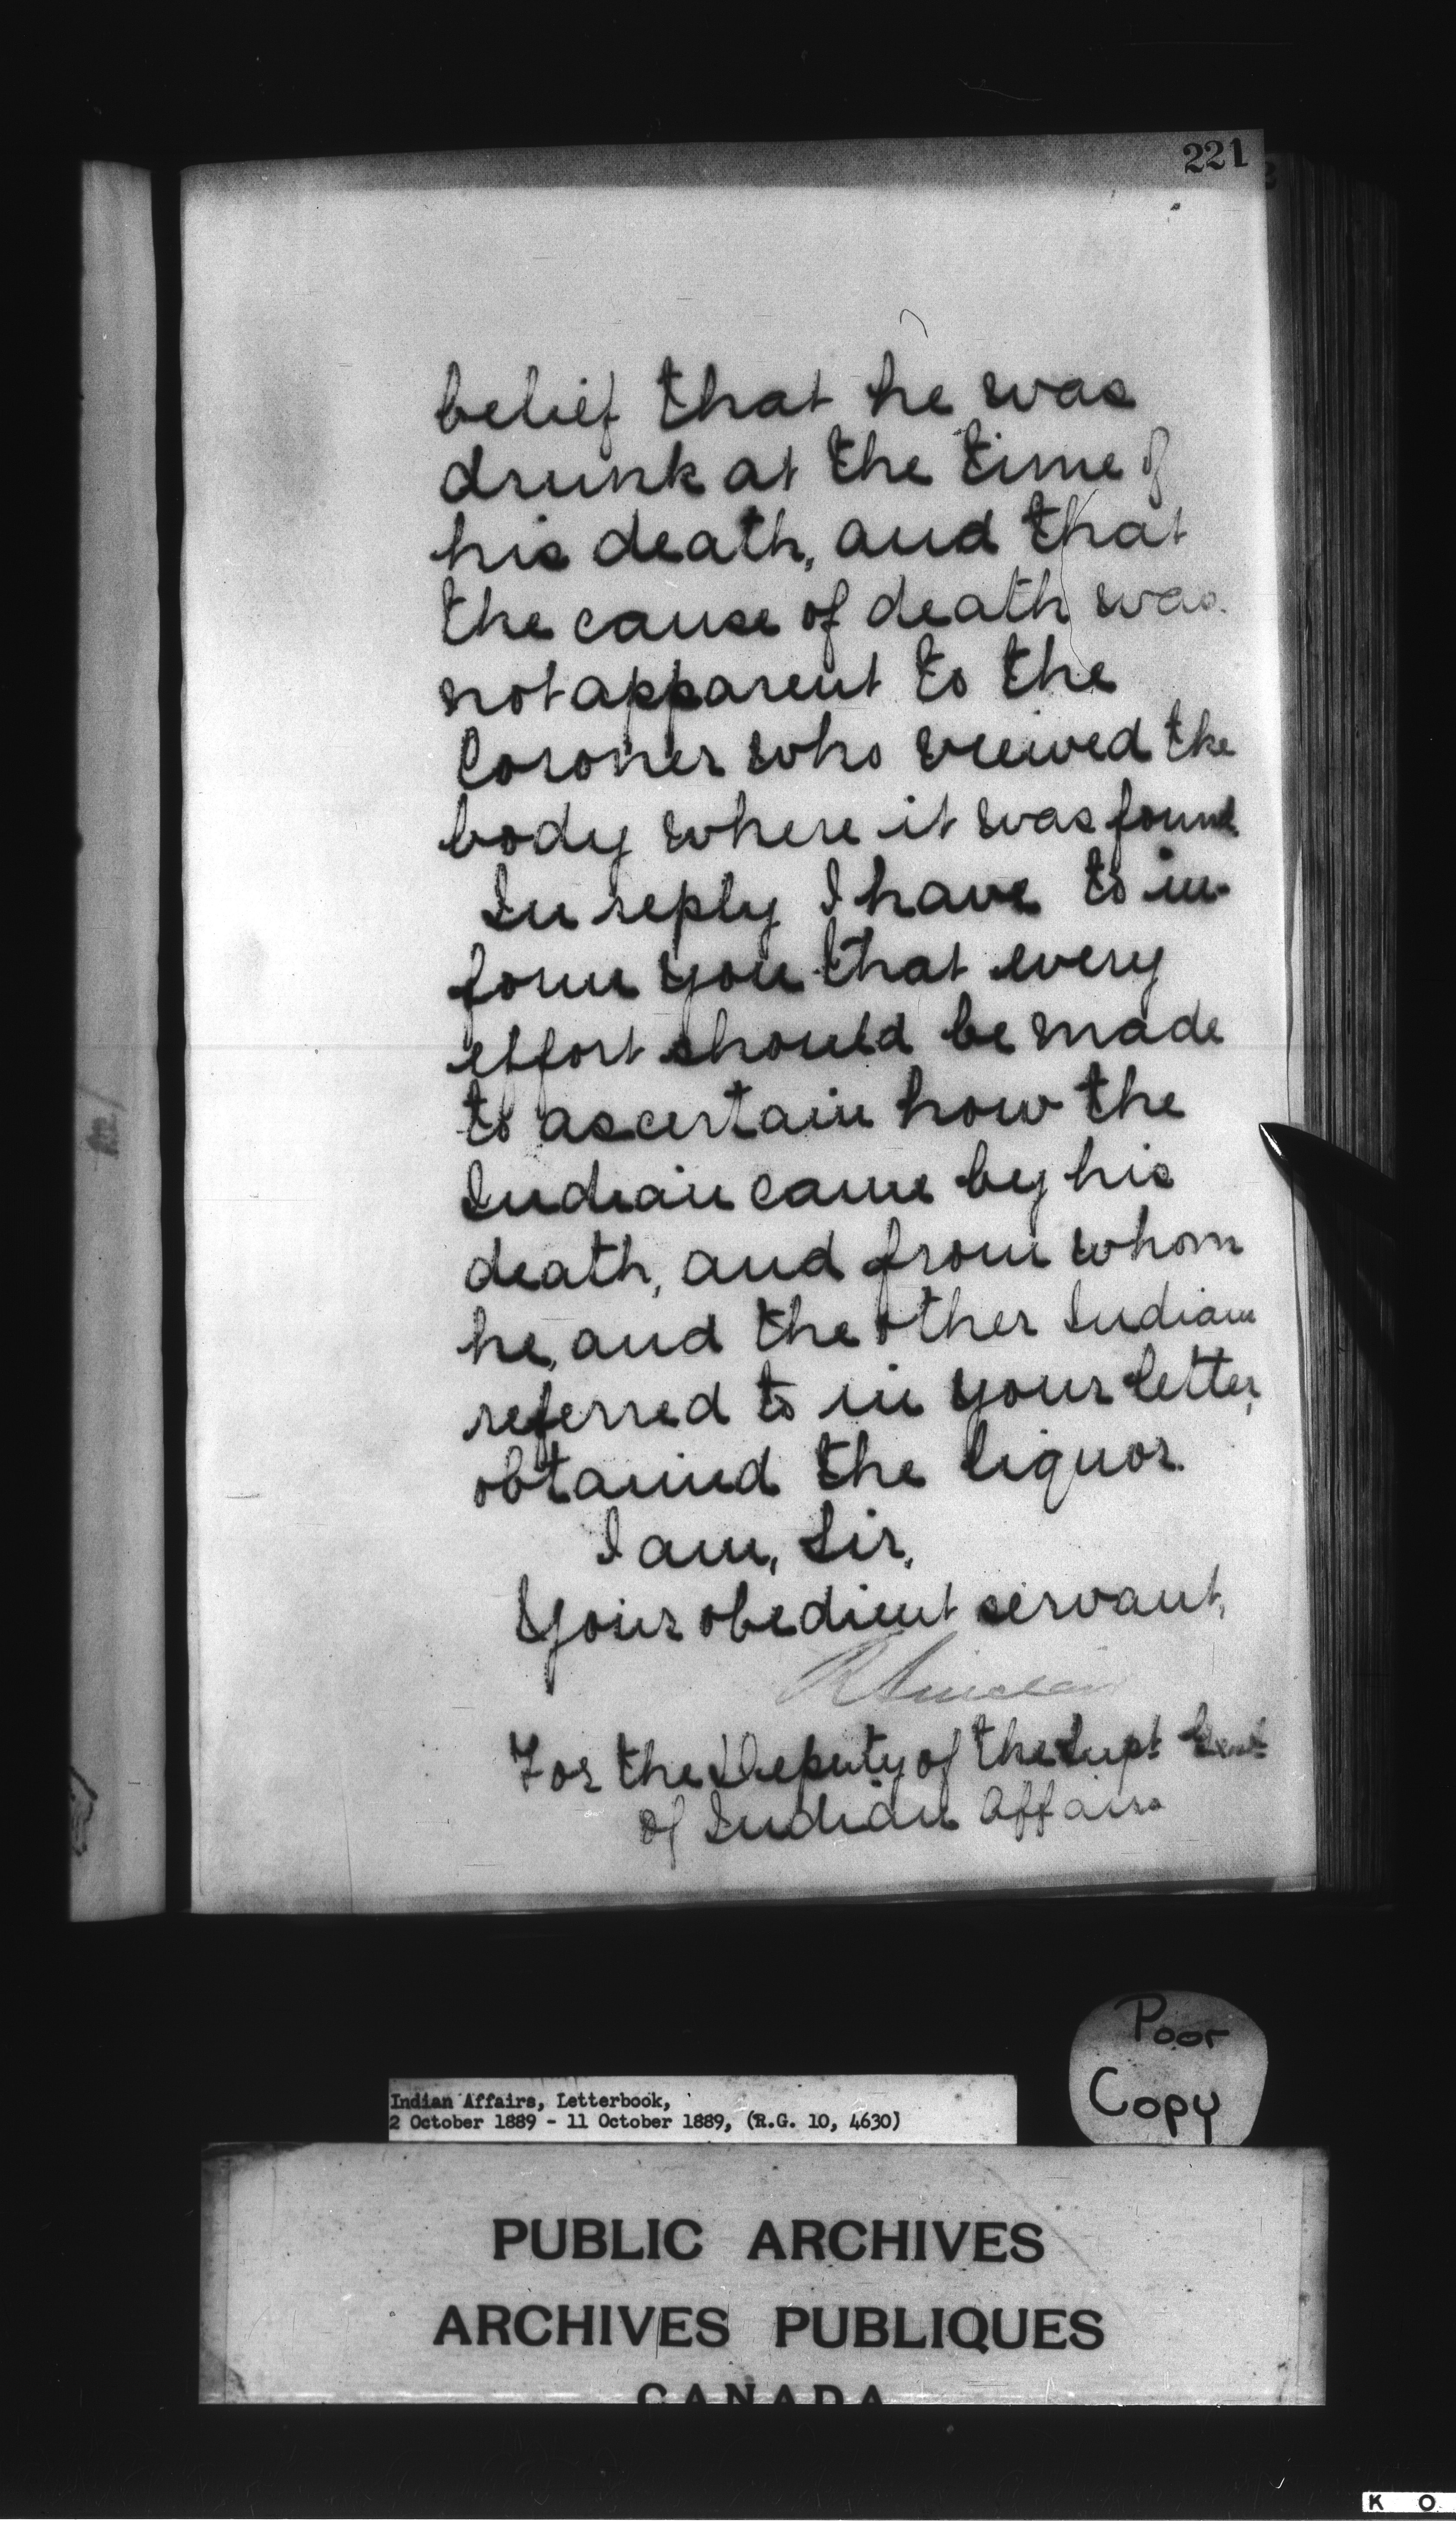 221
belief that he was
drunk at the time of
his death, and that
the cause of death was
not apparent to the
Coroner who viewed the
body where it was found
In reply I have to in-
form you that every
effort should be made
to ascertain how the
Indian came by his
death, and from whom
he, and the other Indian
referred to in your letter,
obtained the liquor.
I am, Sir,
Your obedient servant,
R Sinclair
For the Deputy of the Supt Genl
of Indian Affairs
Poor
Copy
Indian Affairs, Letterbook,
2 October 1889 - 11 October 1889, (R.G. 10, 4630)
PUBLIC ARCHIVES
ARCHIVES PUBLIQUES
CANADA
K O